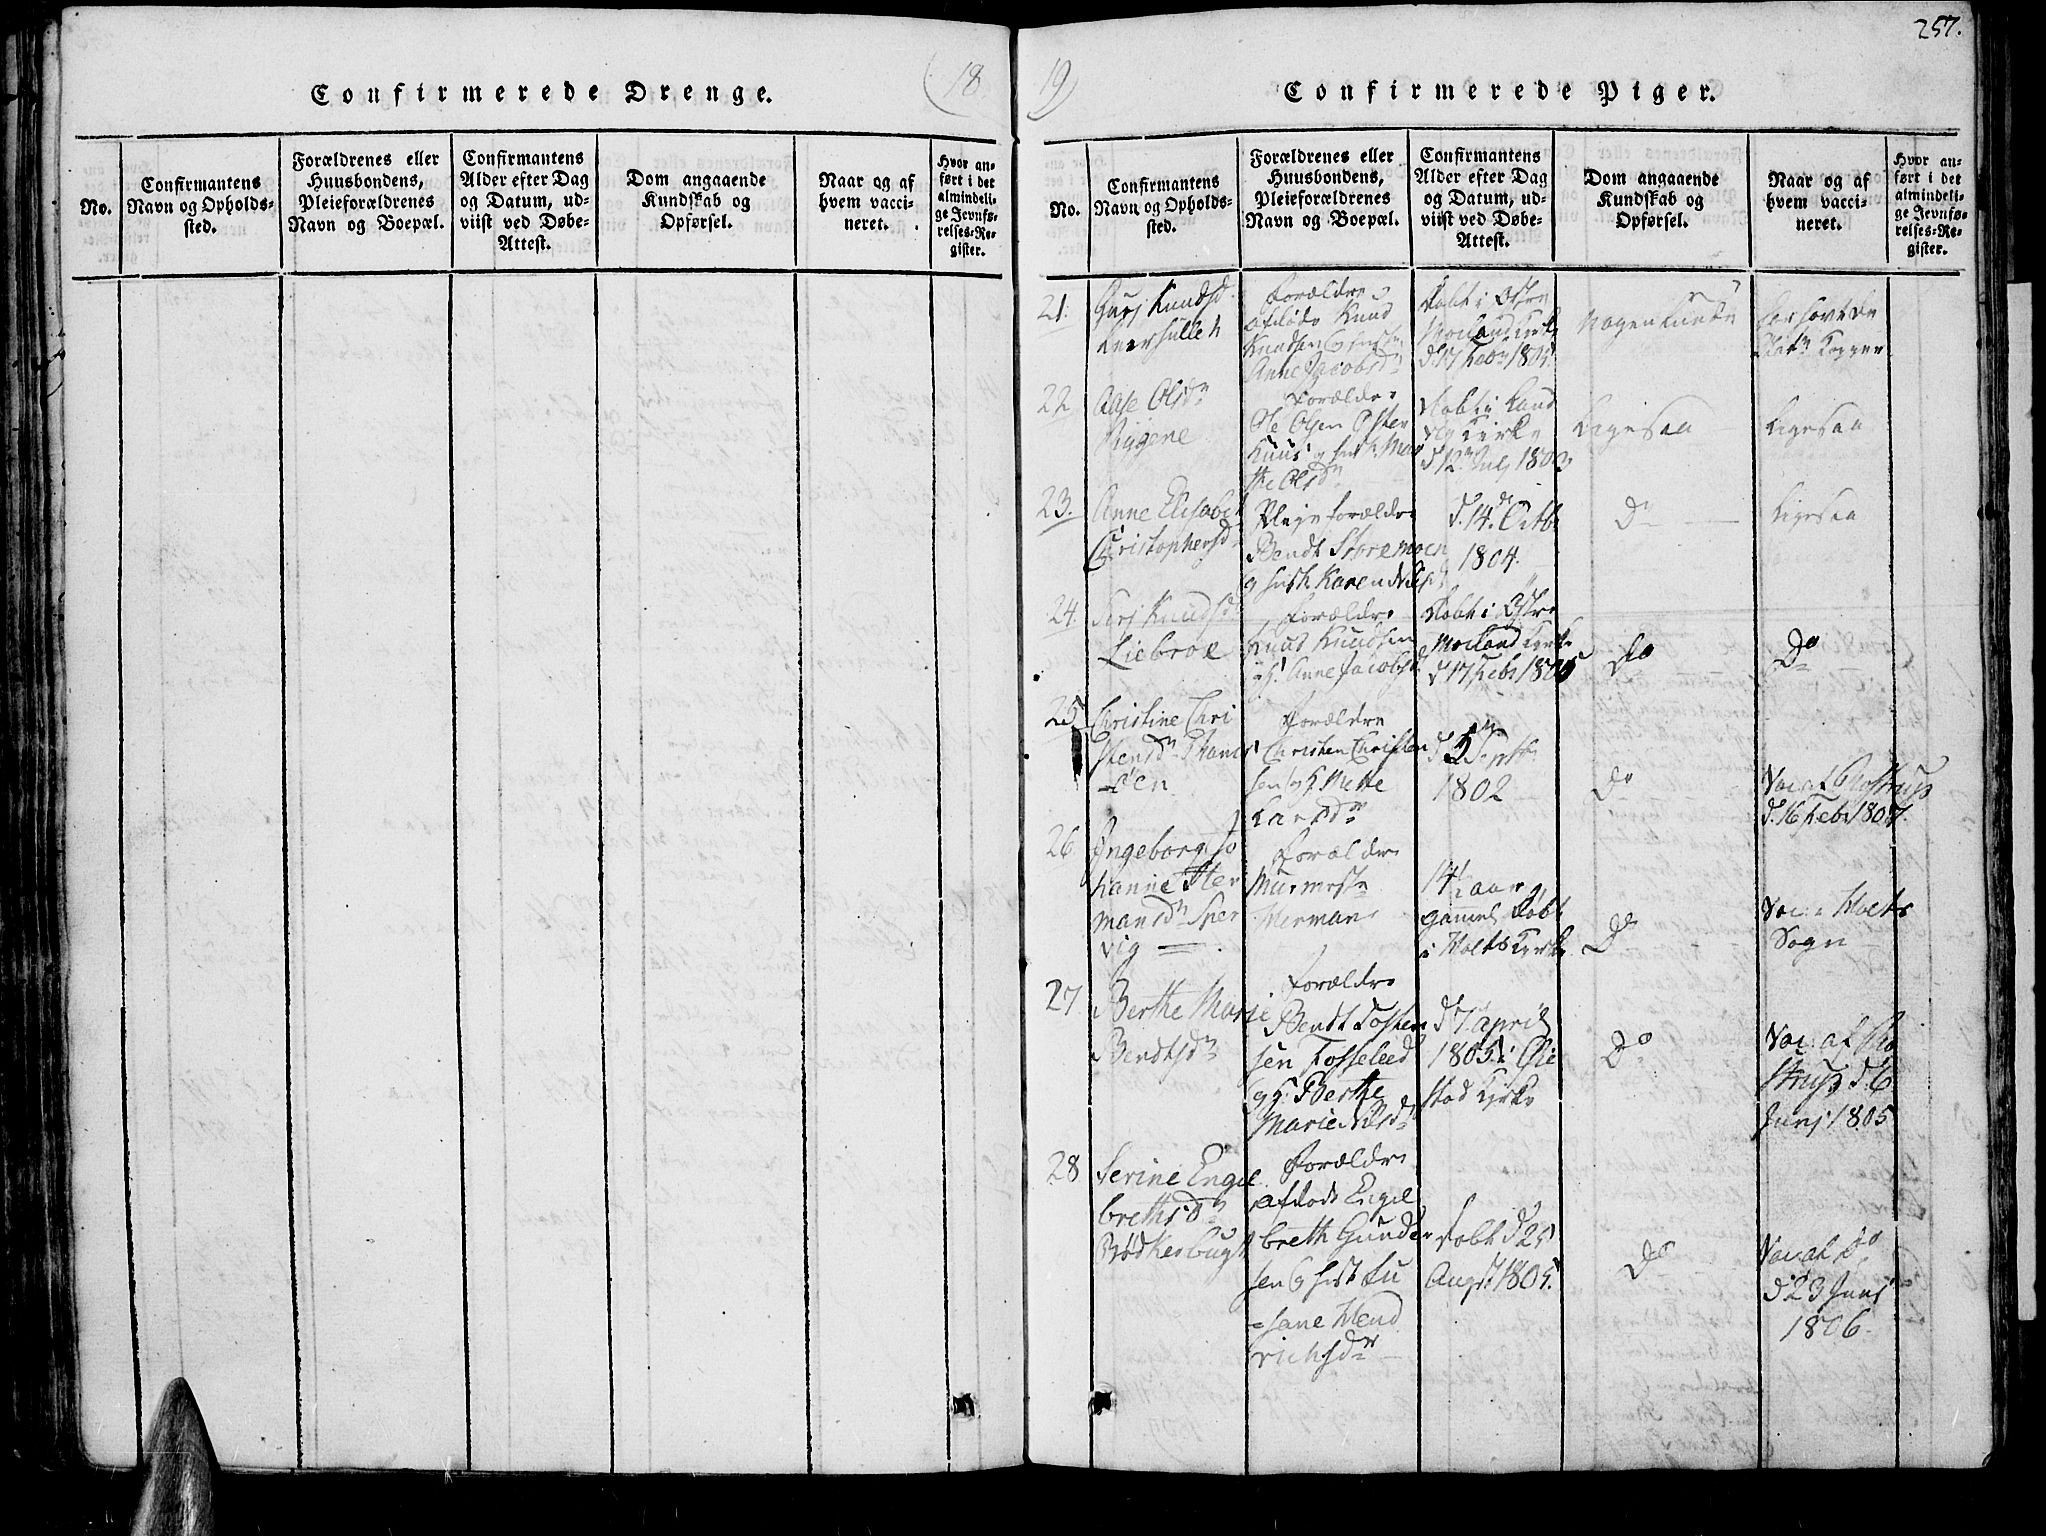 257.
(18
19)
Confirmerede Drenge.
No.
Confirmantens
Navn og Opholds-
sted.
Forældrenes eller
Huusbondens,
Pleieforældrenes
Navn og Boepæl.
Confirmantens
Alder efter Dag
og Datum, ud-
viist ved Døbe-
Attest.
Dom angaaende
Kundskab og
Opførsel.
Naar og af
hvem vacci-
neret.
Hvor an-
ført i det
almindeli-
ge Jevnfø-
relses-Re-
gister.
Confirmerede Piger.
No.
Confirmantens
Navn og Opholds-
sted.
Forældrenes eller
Huusbondens,
Pleieforældrenes
Navn og Boepæl.
Confirmantens
Alder efter Dag
og Datum, ud-
viist ved Døbe-
Attest.
Dom angaaende
Kundskab og
Opførsel.
Naar og af
hvem vacci-
neret.
Hvor an-
ført i det
almindeli-
ge Jevnfø-
relses-Re-
gister.
21.
Knudsd
Forældre
afdøde Knud
Knudsen
Anne Jacobsd
Døbt i Østre
Moland Kirke
d. 17 Febr 1805
har havt de
Kopper
22
Aase Olsdr
Rygene
Forældre
Ole Olsen Oster
Kuus
the Olsdr
Døbt i Land
vig Kirke
d 12 July 1802
Ligesaa
Ligesaa
23.
Anne Elisabet
Christophersd
Pleje forældre
Bendt Storemoen
Karen
d. 14de Octb
1804.
Do
Ligesaa
24.
Knudsd
Liebroe
Forældre
Knud Knudsen
Anne Jacobsd
Døbt i Østre
Moland Kirke
d 17 Febr 1805
Do
Do
25
Christine Chri
stensdr
Forældre
Christen Christen
sen Mette
Larsdr
d 5 Septb
1802
Do
Vac af
d. 16 Febr 1807.
26
Ingeborg Jo
hanne Her
mansdr Sper
vig
Forældre
Murmestr
Herman
14 1/2 aar
gamel Døbt
i Holts Kirke
Do
Vac i Holts
Sogn
27
Berthe Marie
Bendtsdr
Forældre
Bendt Tosten
sen Fosseleed
Berthe
Marie Nilsdr
d 7 April
1805 i Øie
stad Kirke
Do
Vac: af Ro
strup d. 6
Junj 1805
28
Serine Engel
brethsdr
Bødkerbugt
Forældre
afdøde Engel
breth Gunder
sen
sane Hend
richsdr
Døbt d 25
Augst 1805.
Do
Vac af Do
d 23 Junj
1806.